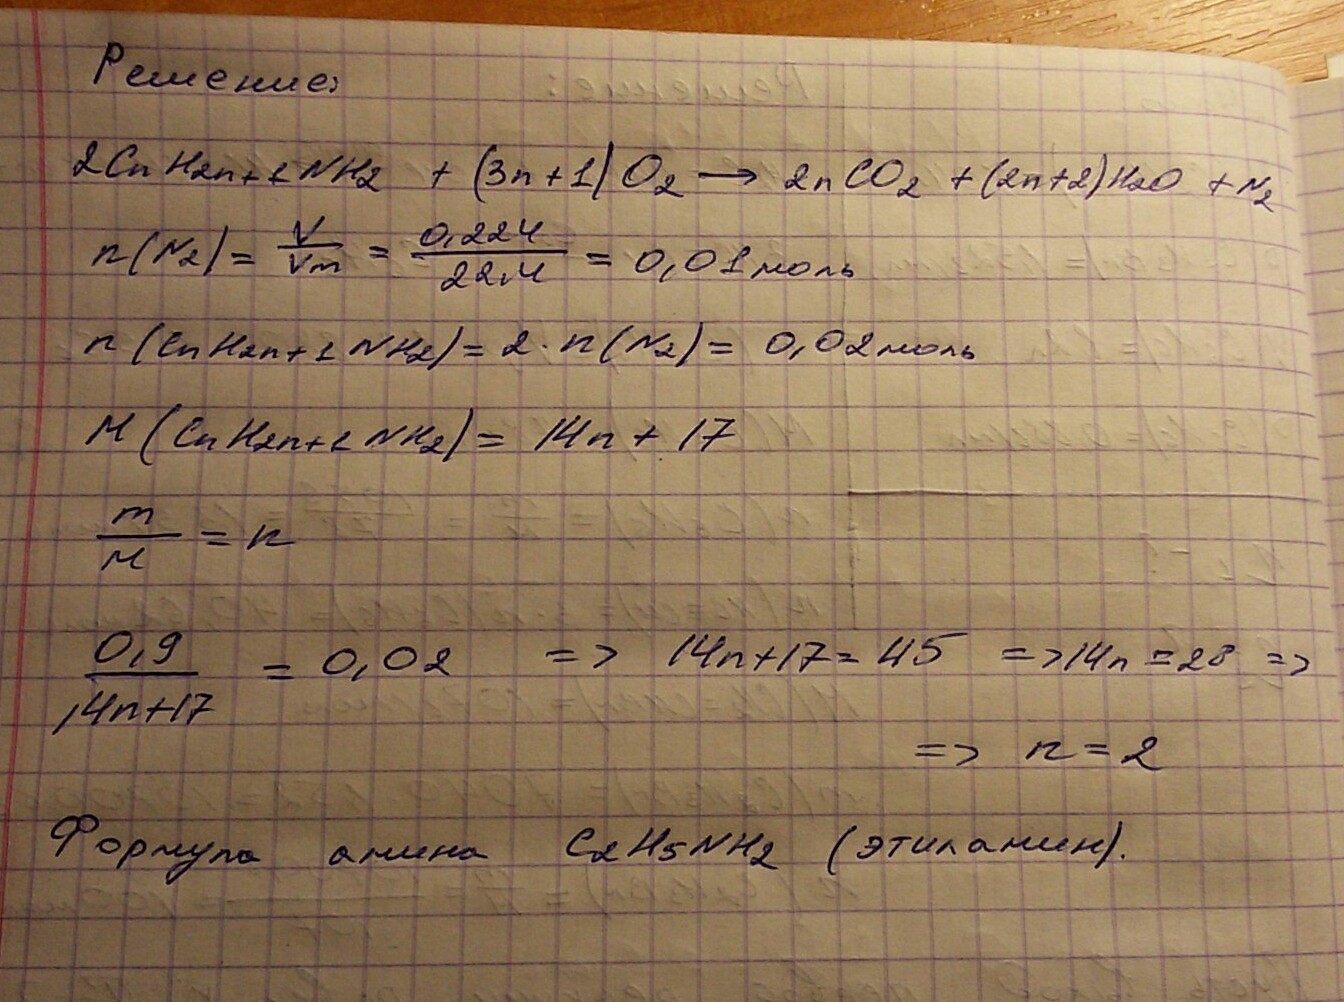 Решение:
2CnH2n+1NH2 + (3n+1)O2 → 2nCO2 + (2n+2)H2O + N2
n(N2) = V/Vm = 0,224/22,4 = 0,01 моль
n(CnH2n+1NH2) = 2 · n(N2) = 0,02 моль
M(CnH2n+1NH2) = 14n + 17
m/M = n
0,9/14n+17 = 0,02 => 14n+17 = 45 => 14n = 28 =>
=> n = 2
Формула амина C2H5NH2 (этиламин).